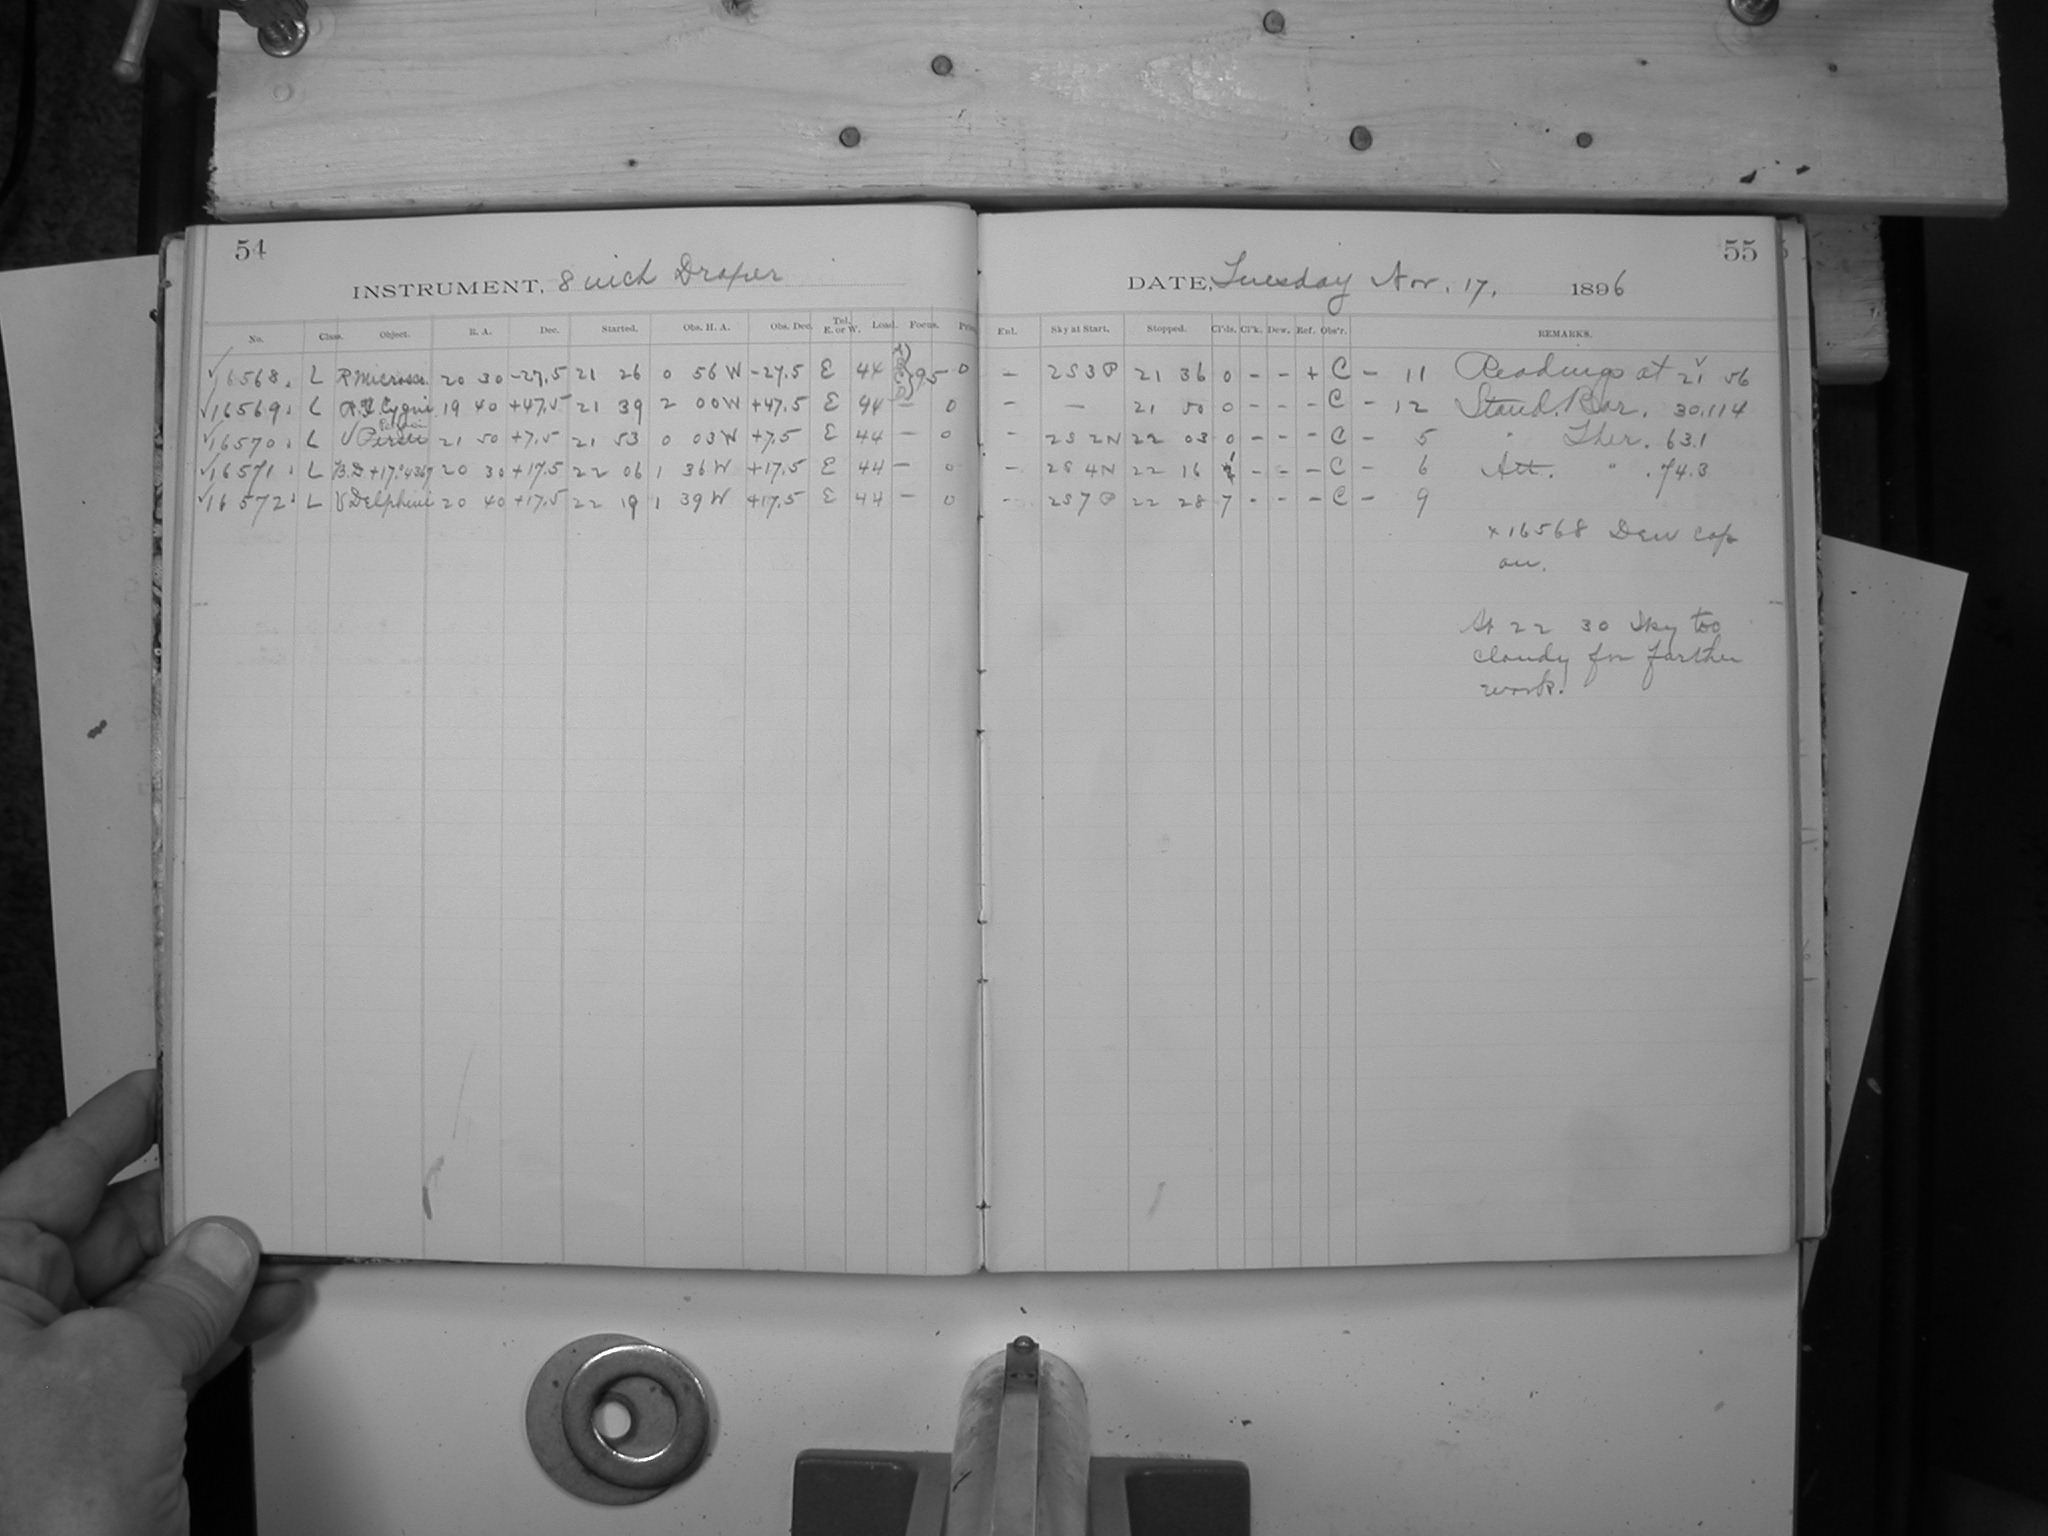 54
INSTRUMENT, 8 inch Draper
No. Class. Object. R. A. Dec. Started. Obs. H. A. Obs. Dec. Tel. E. or W. Load. Focus. Pris.
✓16568. L R Microsc. 20 30 -27.5 21 26 0 56 W -27.5 E 44 95 0
✓16569. L Cygni 19 40 +47.5 21 39 2 00 W +47.5 E 44 — 0
✓16570. L V 21 50 +7.5 21 53 0 03 W +7.5 E 44 — 0
✓16571. L B.D +17.°4367 20 30 +17.5 22 06 1 36 W +17.5 E 44 — 0
✓16572. L V Delphini 20 40 +17.5 22 19 1 39 W +17.5 E 44 — 0
55
DATE, Tuesday Nov. 17, 1896
Enl. Sky at Start. Stopped. Cl'ds. Cl'k. Dew. Ref. Obs'r. REMARKS.
— 2S3P 21 36 0 - - + C - 11 Readings at 21 56
— — 21 50 0 - - - C - 12 Stand. Bar. 30.114
— 2S 2N 22 03 0 - - - C - 5 " Ther. 63.1
— 2S 4N 22 16 - - - C - 6 Att. " 74.3
— 2S7P 22 28 7 - - - C - 9
x 16568 Dew cap
on.
At 22 30 sky too
cloudy for further
work.